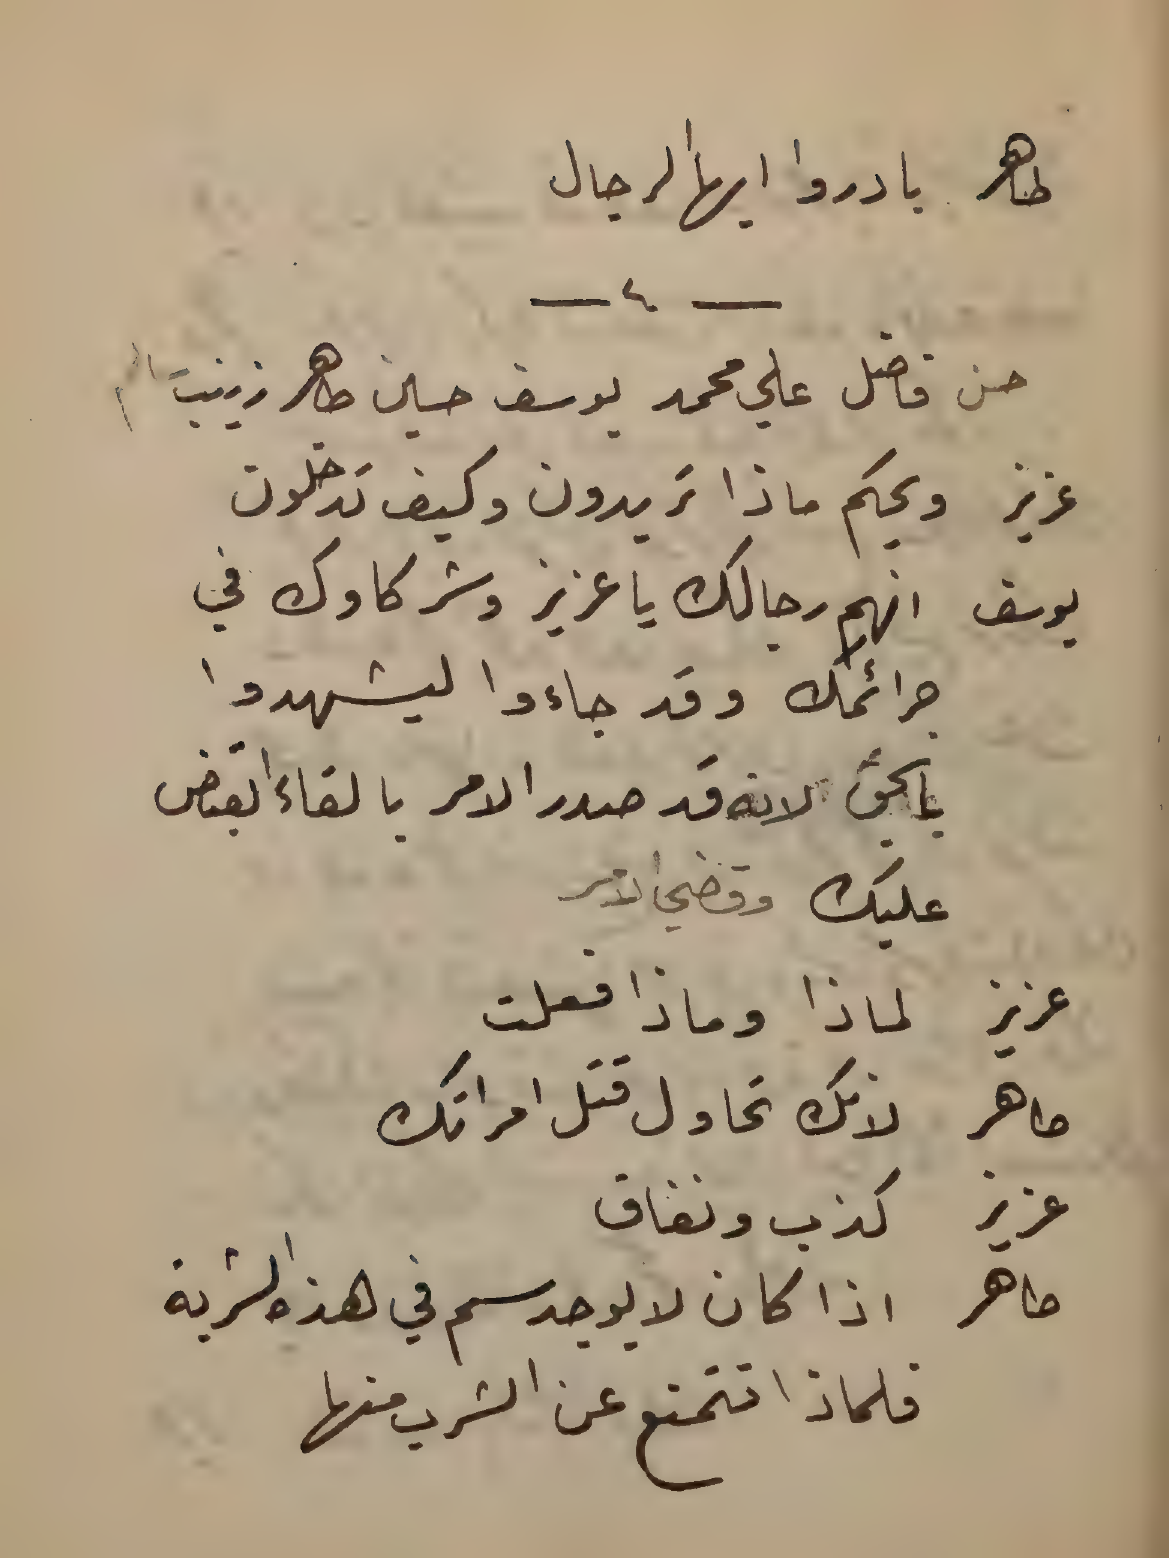 طاهر بادروا ايها الرجال
— ٤ —
حسن فاضل علي محمد يوسف حسين طاهر زينب
عزيز ويحكم ماذا تريدون وكيف تدخلون
يوسف انهم رجالك يا عزيز وشركاوك في
جرائمك وقد جاءوا ليشهدوا
بالحق لانه قد صدر الامر بالقاء القبض
عليك وقضي الامر
عزيز لماذا وماذا فعلت
طاهر لانك تحاول قتل امراتك
عزيز كذب ونفاق
طاهر اذا كان لا يوجد سم في هذه الشربة
فلماذا تتمنع عن الشرب منها